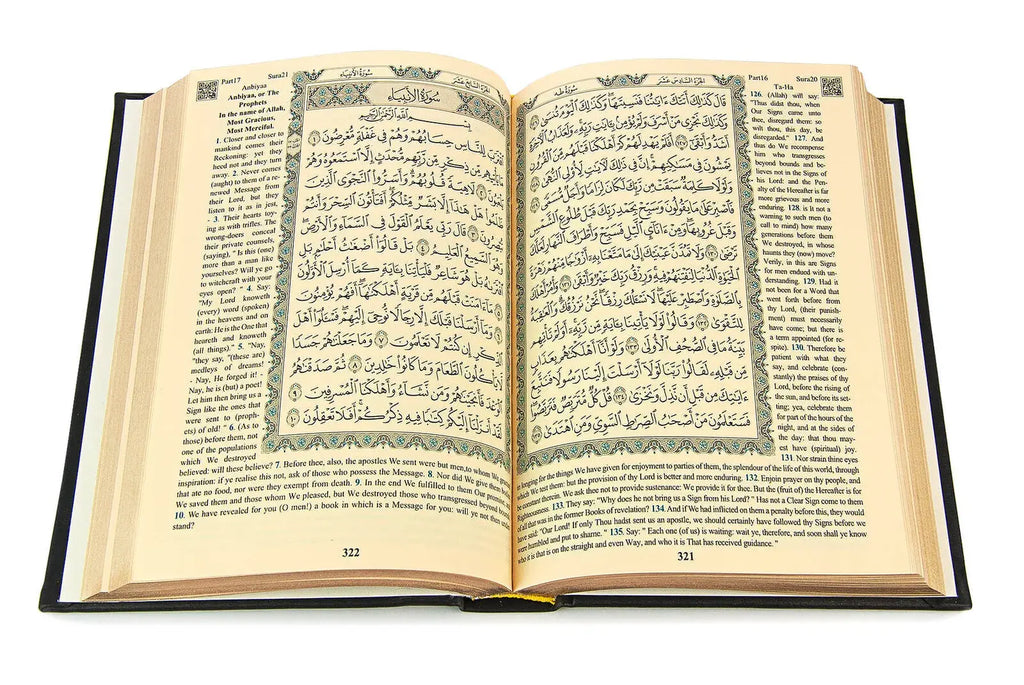 Part16 Sura20
الجزء السادس عشر سورة طه
قَالَ كَذَٰلِكَ أَتَتْكَ ءَايَٰتُنَا فَنَسِيتَهَا ۖ وَكَذَٰلِكَ ٱلْيَوْمَ تُنسَىٰ ١٢٦
وَكَذَٰلِكَ نَجْزِي مَنْ أَسْرَفَ وَلَمْ يُؤْمِنۢ بِـَٔايَٰتِ رَبِّهِۦ ۚ وَلَعَذَابُ ٱلْءَاخِرَةِ
أَشَدُّ وَأَبْقَىٰٓ ١٢٧ أَفَلَمْ يَهْدِ لَهُمْ كَمْ أَهْلَكْنَا قَبْلَهُم مِّنَ ٱلْقُرُونِ
يَمْشُونَ فِي مَسَٰكِنِهِمْ ۗ إِنَّ فِي ذَٰلِكَ لَءَايَٰتٍ لِّأُو۟لِي ٱلنُّهَىٰ ١٢٨
وَلَوْلَا كَلِمَةٌ سَبَقَتْ مِن رَّبِّكَ لَكَانَ لِزَامًا وَأَجَلٌ مُّسَمًّى ١٢٩
فَٱصْبِرْ عَلَىٰ مَا يَقُولُونَ وَسَبِّحْ بِحَمْدِ رَبِّكَ قَبْلَ طُلُوعِ ٱلشَّمْسِ
وَقَبْلَ غُرُوبِهَا ۖ وَمِنْ ءَانَآئِ ٱلَّيْلِ فَسَبِّحْ وَأَطْرَافَ ٱلنَّهَارِ لَعَلَّكَ
تَرْضَىٰ ١٣٠ وَلَا تَمُدَّنَّ عَيْنَيْكَ إِلَىٰ مَا مَتَّعْنَا بِهِۦٓ أَزْوَٰجًا مِّنْهُمْ زَهْرَةَ
ٱلْحَيَوٰةِ ٱلدُّنْيَا لِنَفْتِنَهُمْ فِيهِ ۚ وَرِزْقُ رَبِّكَ خَيْرٌ وَأَبْقَىٰ ١٣١ وَأْمُرْ أَهْلَكَ
بِٱلصَّلَوٰةِ وَٱصْطَبِرْ عَلَيْهَا ۖ لَا نَسْـَٔلُكَ رِزْقًا ۖ نَّحْنُ نَرْزُقُكَ ۗ وَٱلْعَٰقِبَةُ
لِلتَّقْوَىٰ ١٣٢ وَقَالُوا۟ لَوْلَا يَأْتِينَا بِـَٔايَةٍ مِّن رَّبِّهِۦٓ ۚ أَوَلَمْ تَأْتِهِم
بَيِّنَةُ مَا فِي ٱلصُّحُفِ ٱلْأُولَىٰ ١٣٣ وَلَوْ أَنَّآ أَهْلَكْنَٰهُم بِعَذَابٍ
مِّن قَبْلِهِۦ لَقَالُوا۟ رَبَّنَا لَوْلَآ أَرْسَلْتَ إِلَيْنَا رَسُولًا فَنَتَّبِعَ
ءَايَٰتِكَ مِن قَبْلِ أَن نَّذِلَّ وَنَخْزَىٰ ١٣٤ قُلْ كُلٌّ مُّتَرَبِّصٌ فَتَرَبَّصُوا۟ ۖ
فَسَتَعْلَمُونَ مَنْ أَصْحَٰبُ ٱلصِّرَٰطِ ٱلسَّوِيِّ وَمَنِ ٱهْتَدَىٰ ١٣٥
Ta-Ha
126. (Allah) will say:
"Thus didst thou, when
Our Signs came unto
thee, disregard them: so
wilt thou, this day, be
disregarded." 127. And
thus do We recompense
him who transgresses
beyond bounds and be-
lieves not in the Signs of
his Lord: and the Pen-
alty of the Hereafter is far
more grievous and more
enduring. 128. is it not a
warning to such men (to
call to mind) how many
generations before them
We destroyed, in whose
haunts they (now) move?
Verily, in this are Signs
for men endued with un-
derstanding. 129. Had it
not been for a Word that
went forth before from
thy Lord, (their punish-
ment) must necessarily
have come; but there is
a term appointed (for re-
spite). 130. Therefore be
patient with what they
say, and celebrate (con-
stantly) the praises of thy
Lord, before the rising of
the sun, and before its set-
ting; yea, celebrate them
for part of the hours of the
night, and at the sides of
the day: that thou may-
est have (spiritual) joy.
131. Nor strain thine eyes
in longing for the things We have given for enjoyment to parties of them, the splendour of the life of this world, through
which We test them: but the provision of thy Lord is better and more enduring. 132. Enjoin prayer on thy people, and
be constant therein. We ask thee not to provide sustenance: We provide it for thee. But the (fruit of) the Hereafter is for
Righteousness. 133. They say: "Why does he not bring us a Sign from his Lord? " Has not a Clear Sign come to them
of all that was in the former Books of revelation? 134. And if We had inflicted on them a penalty before this, they would
have said: "Our Lord! If only Thou hadst sent us an apostle, we should certainly have followed thy Signs before we
were humbled and put to shame. " 135. Say: " Each one (of us) is waiting: wait ye, therefore, and soon shall ye know
who it is that is on the straight and even Way, and who it is That has received guidance. "
321
Part17 Sura21
الجزء السابع عشر سورة الأنبياء
سُورَةُ الأَنْبِيَاءِ
بِسْمِ ٱللَّهِ ٱلرَّحْمَٰنِ ٱلرَّحِيمِ
ٱقْتَرَبَ لِلنَّاسِ حِسَابُهُمْ وَهُمْ فِي غَفْلَةٍ مُّعْرِضُونَ ١
مَا يَأْتِيهِم مِّن ذِكْرٍ مِّن رَّبِّهِم مُّحْدَثٍ إِلَّا ٱسْتَمَعُوهُ وَهُمْ
يَلْعَبُونَ ٢ لَاهِيَةً قُلُوبُهُمْ ۗ وَأَسَرُّوا۟ ٱلنَّجْوَى ٱلَّذِينَ
ظَلَمُوا۟ هَلْ هَٰذَآ إِلَّا بَشَرٌ مِّثْلُكُمْ ۖ أَفَتَأْتُونَ ٱلسِّحْرَ وَأَنتُمْ
تُبْصِرُونَ ٣ قَالَ رَبِّي يَعْلَمُ ٱلْقَوْلَ فِي ٱلسَّمَآءِ وَٱلْأَرْضِ ۖ
وَهُوَ ٱلسَّمِيعُ ٱلْعَلِيمُ ٤ بَلْ قَالُوٓا۟ أَضْغَٰثُ أَحْلَٰمٍۭ بَلِ
ٱفْتَرَىٰهُ بَلْ هُوَ شَاعِرٌ فَلْيَأْتِنَا بِـَٔايَةٍ كَمَآ أُرْسِلَ ٱلْأَوَّلُونَ
٥ مَآ ءَامَنَتْ قَبْلَهُم مِّن قَرْيَةٍ أَهْلَكْنَٰهَآ ۖ أَفَهُمْ يُؤْمِنُونَ
٦ وَمَآ أَرْسَلْنَا قَبْلَكَ إِلَّا رِجَالًا نُّوحِيٓ إِلَيْهِمْ ۖ فَسْـَٔلُوٓا۟ أَهْلَ
ٱلذِّكْرِ إِن كُنتُمْ لَا تَعْلَمُونَ ٧ وَمَا جَعَلْنَٰهُمْ جَسَدًا
لَّا يَأْكُلُونَ ٱلطَّعَامَ وَمَا كَانُوا۟ خَٰلِدِينَ ٨ ثُمَّ صَدَقْنَٰهُمُ
ٱلْوَعْدَ فَأَنجَيْنَٰهُمْ وَمَن نَّشَآءُ وَأَهْلَكْنَا ٱلْمُسْرِفِينَ ٩
لَقَدْ أَنزَلْنَآ إِلَيْكُمْ كِتَٰبًا فِيهِ ذِكْرُكُمْ ۖ أَفَلَا تَعْقِلُونَ ١٠
Anbiyaa
Anbiyaa, or The
Prophets
In the name of Allah,
Most Gracious,
Most Merciful.
1. Closer and closer to
mankind comes their
Reckoning: yet they
heed not and they turn
away. 2. Never comes
(aught) to them of a re-
newed Message from
their Lord, but they
listen to it as in jest,
- 3. Their hearts toy-
ing as with trifles. The
wrong-doers conceal
their private counsels,
(saying), " Is this (one)
more than a man like
yourselves? Will ye go
to witchcraft with your
eyes open? " 4. Say:
"My Lord knoweth
(every) word (spoken)
in the heavens and on
earth: He is the One that
heareth and knoweth
(all things)." 5. "Nay,
"they say, "(these are)
medleys of dreams!
- Nay, He forged it! -
Nay, he is (but) a poet!
Let him then bring us a
Sign like the ones that
were sent to (proph-
ets) of old! " 6. (As to
those) before them, not
one of the populations
which We destroyed
believed: will these believe? 7. Before thee, also, the apostles We sent were but men,to whom We granted
inspiration: if ye realise this not, ask of those who possess the Message. 8. Nor did We give them bodies
that ate no food, nor were they exempt from death. 9. In the end We fulfilled to them Our promise, and
We saved them and those whom We pleased, but We destroyed those who transgressed beyond bounds.
10. We have revealed for you (O men!) a book in which is a Message for you: will ye not then under-
stand?
322